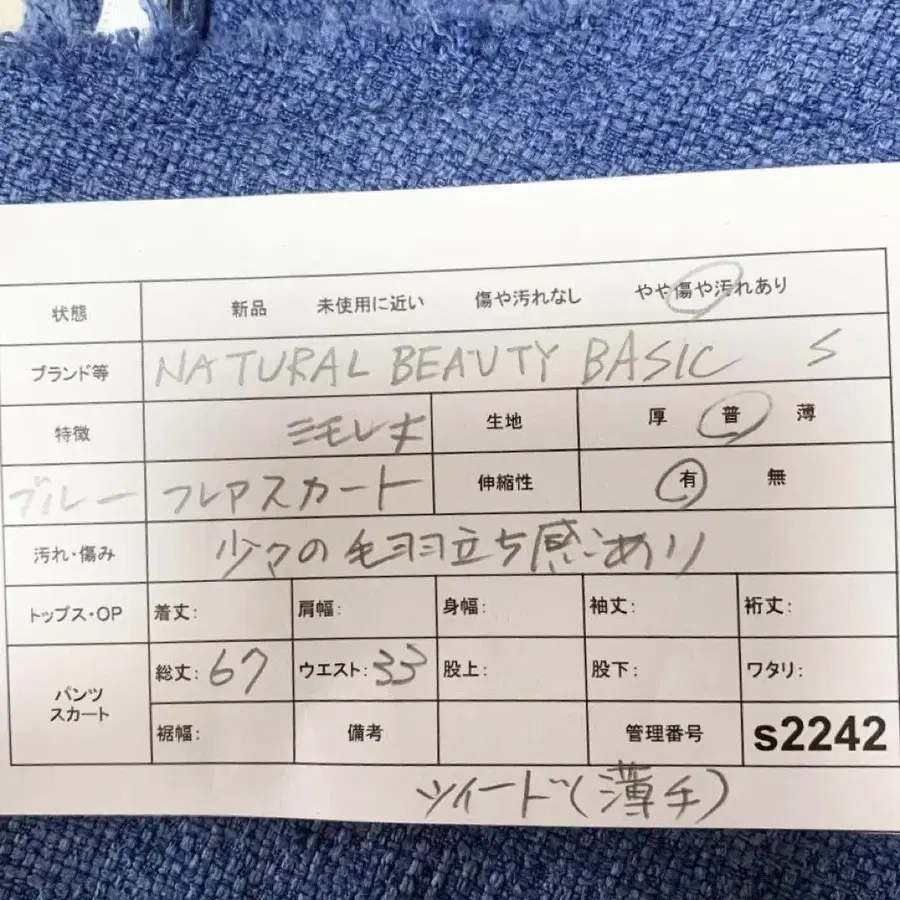 状態 新品 未使用に近い 傷や汚れなし やや傷や汚れあり
ブランド等 NATURAL BEAUTY BASIC S
特徴 ミモレ丈 生地 厚 普 薄
ブルー フレアスカート 伸縮性 有 無
汚れ・傷み 少々の毛羽立ち感あり
トップス・OP 着丈: 肩幅: 身幅: 袖丈: 裄丈:
パンツ スカート 総丈: 67 ウエスト: 33 股上: 股下: ワタリ:
裾幅: 備考 管理番号 s2242
ツイード(薄手)